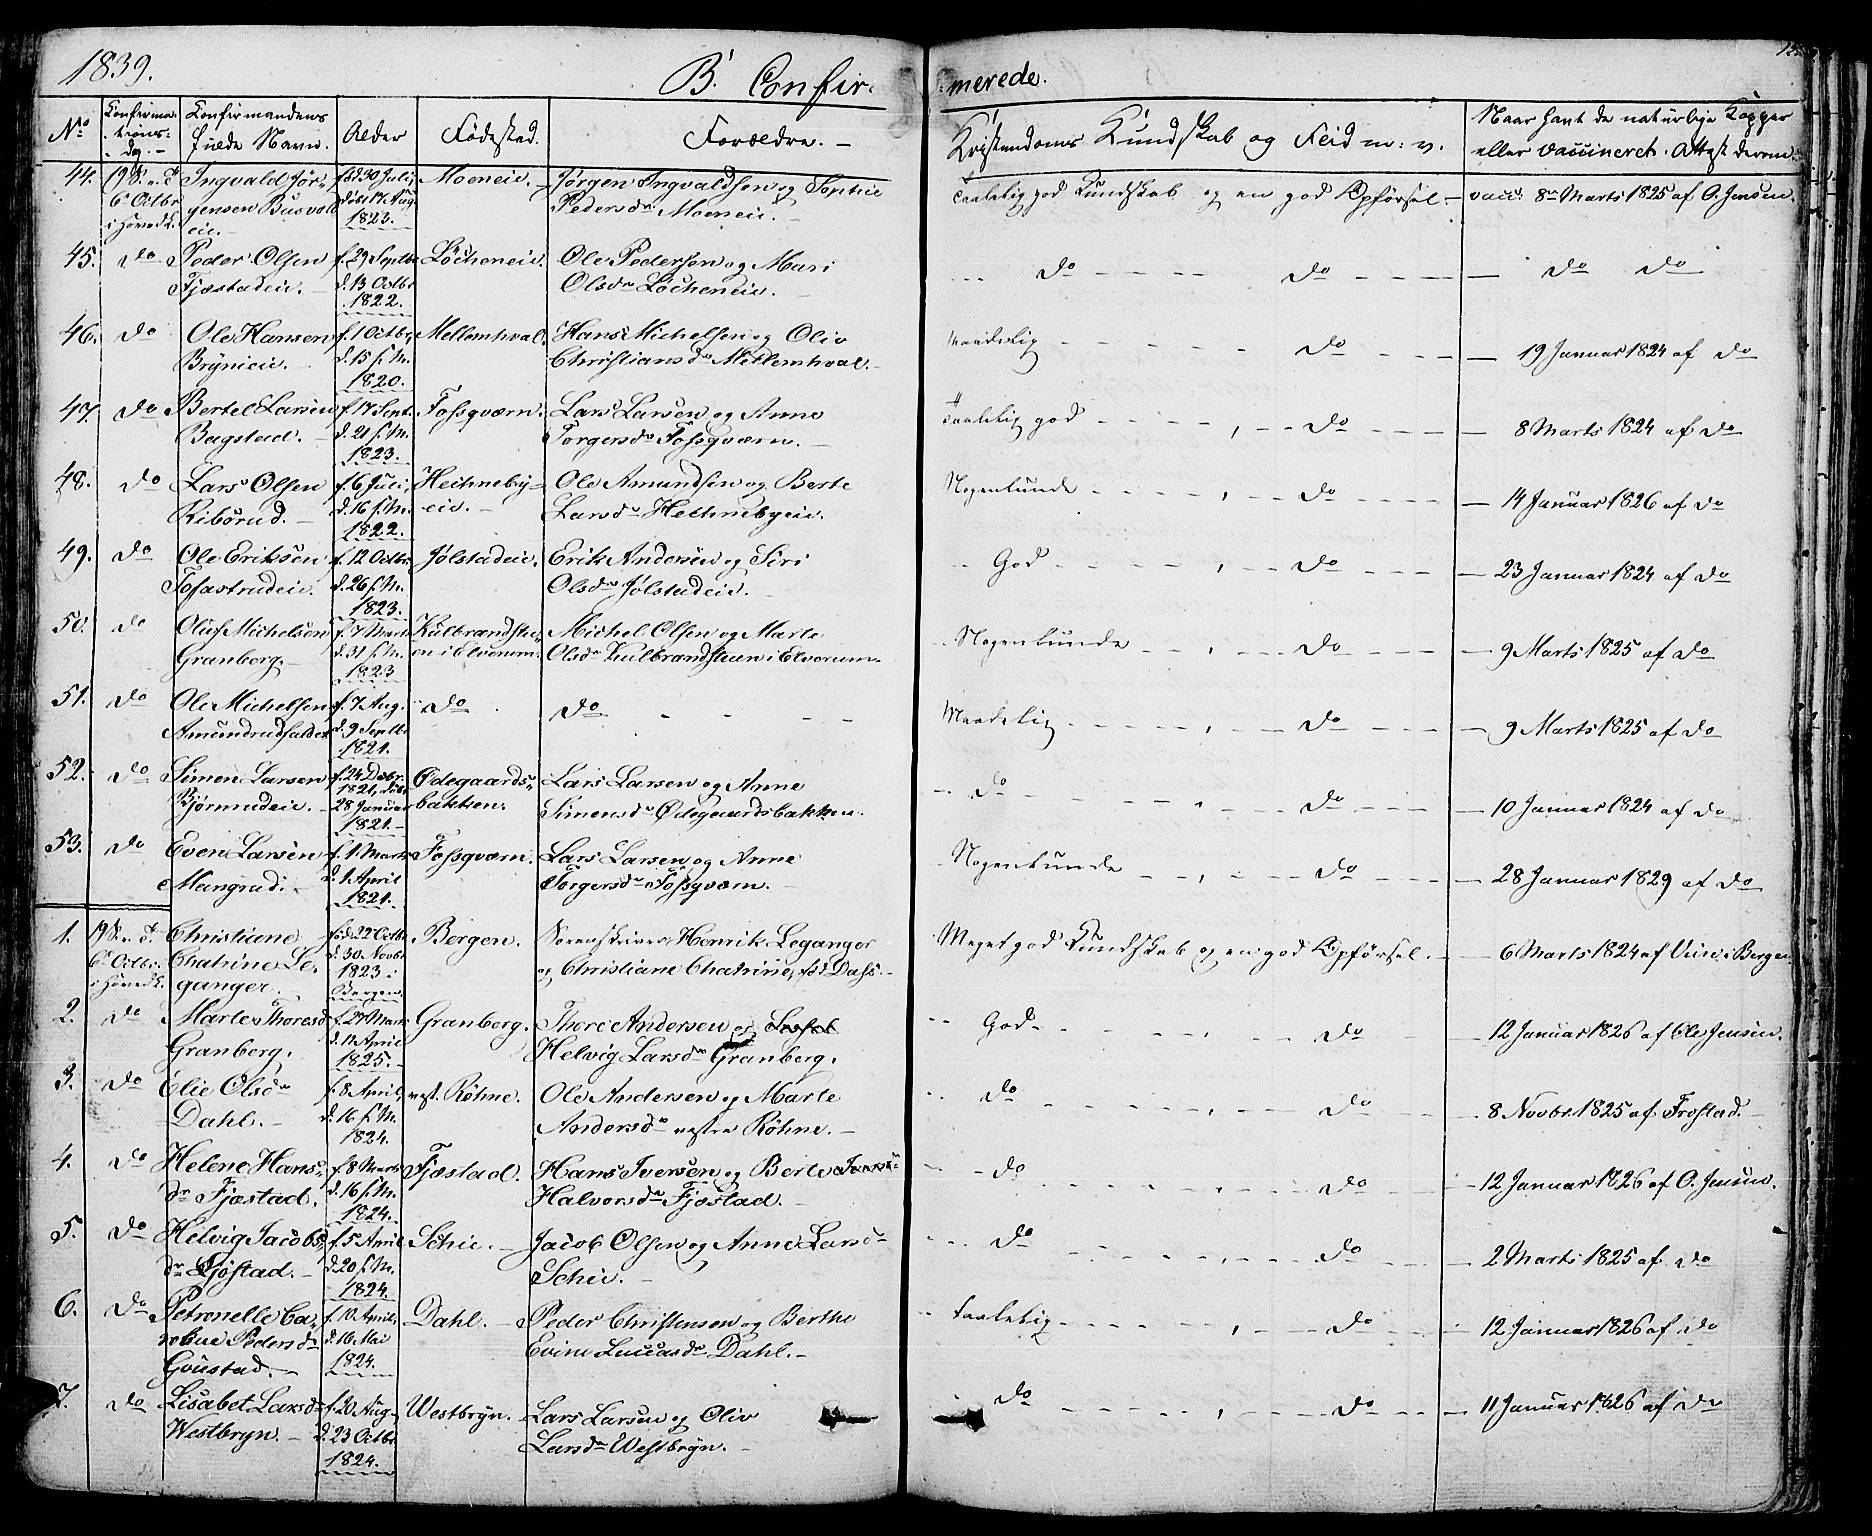 1839.
B. Confir-
merede.
No Confirmations-Dag. Confirmandens fulde Navn. Alder Fødested. Forældre.
Kristendoms Kundskab og Fliid m: v. Naar havt de naturlige Kopper eller vaccineret. Attest derom.
44. 19 S. e. Tr. 6te Octbr i Hovedk. Ingvald Jørgensen Busvoldeie. fød 30 Juli, døbt 17 Aug. 1823. Moeneie. Jørgen Ingvaldsen og Sophie Pedersdr Moeneie. Taalelig god Kundskab og en god Opførsel vacc: 8de Marts 1825 af O. Jensen.
45. do Peder Olsen Fjæstadeie. f. 29 Septbr d. 13 Octbr 1822. Løcheneie. Ole Pedersen og Mari Olsdr Løcheneie. do do do do
46. do Ole Hansen Brynieie. f. 1 Octbr, d. 15 s. M. 1820. Mellemhval. Hans Michelsen og Oliv Christiansdr Mellemhval. Maadelig do 19 Januar 1824 af do
47. do Bertel Larsen Bagstad. f. 17 Sept. d. 21 s. M. 1823. Fossqværn. Lars Larsen og Anne Torgersdr Fossqværn. Taalelig god do 8 Marts 1824 af do
48. do Lars Olsen Riborud. f. 6 Juli, d. 16 s. M. 1822. Helhnebyeie. Ole Amundsen og Berte Larsdr Helhnebyeie. Nogenlunde do 14 Januar 1826 af do
49. do Ole Eriksen Tofastrudeie. f. 12 Octbr. d. 26 s. M. 1823. Jølstadeie. Erik Andersen og Siri Olsdr Jølstadeie. God do 23 Januar 1824 af do
50. do Oluf Michelsen Granberg. f. 7 Marts d. 31 s. M. 1823 Kulbrandstuen i Elverum. Michel Olsen og Marte Olsdr Kulbrandstuen i Elverum. Nogenlunde do 9 Marts 1825 af do
51. do Ole Michelsen Amundrudsalden f. 7 Aug. d. 9 Septbr 1821. do do Maadelig do 9 Marts 1825 af do
52. do Simen Larsen Bjørnrudeie. f. 24 Decbr. 1821, døbt 28 Januar 1821. Ødegaardsbakken. Lars Larsen og Anne Simensdr Ødegaardsbakken. do do 10 Januar 1824 af do
53. do Even Larsen Mangrud. f. 1 Marts d. 1 April 1821. Fossqværn. Lars Larsen og Anne Torgersdr Fossqværn. Nogenlunde do 28 Januar 1829 af do
1. 19 S. e. Tr. 6te Octbr. i Hovedk. Christiane Chatrine Leganger. fød 22 Octbr d. 30 Novbr 1823 i Bergen. Bergen. Sorenskriver Henrik Leganger og Christiane Chatrine, fød Dahs. Meget god Kundskab og en god Opførsel. 6 Marts 1824 af i Bergen
2. do Marte Thoresdr Granberg. f. 27 Marts d. 11 April 1825. Granberg. Thore Andersen og Helvig Larsdr Granberg. God do 12 Januar 1826 af Ole Jensen.
3. do Elie Olsdr Dahl. f. 8 April, d. 16 s. M. 1824. vest. Røhne. Ole Andersen og Marte Andersdr vestre Røhne. do do 8 Novbr. 1825 af Frostad.
4. do Helene Hansdr Fjæstad. f. 8 Marts d. 16 s. M. 1824. Fjæstad. Hans Iversen og Berte Halvorsdr Fjæstad. do do 12 Januar 1826 af O. Jensen.
5. do Helvig Jacobsdr Sjøstad. f. 5 April d. 20 s. M. 1824. Schie. Jacob Olsen og Anne Larsdr Schie. do do 2 Marts 1825 af do
6. do Petronelle Caroline Pedersdr Goustad. f. 10 April, d. 16 Mai 1824. Dahl. Peder Christensen og Berthe Evine Luccasdr Dahl. taalelig do 12 Januar 1826 af do
7. do Lisabet Larsdr Westbryn. f. 20 Aug. d. 23 Octbr 1824. Westbryn. Lars Larsen og Oliv Larsdr Westbryn. do do 11 Januar 1826 af do